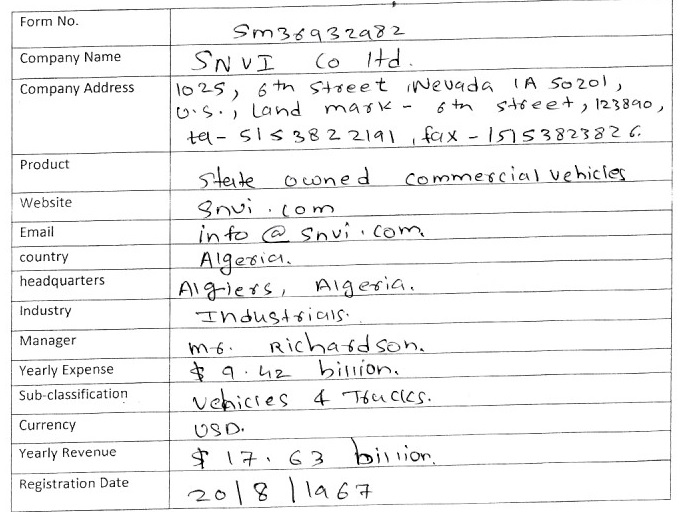 Form No. Sm36932982
Company Name SNVI Co ltd.
Company Address 1025, 6th Street, Nevada IA 50201,
U.S., Land mark - 6th street, 123890,
tel - 5153822191, fax - 15153823826.
Product State owned commercial vehicles
Website Snvi.com
Email info@snvi.com.
country Algeria.
headquarters Algiers, Algeria.
Industry Industrials.
Manager mr. Richardson.
Yearly Expense $ 9.42 billion.
Sub-classification Vehicles & Trucks.
Currency USD.
Yearly Revenue $ 17.63 billion.
Registration Date 20/8/1967